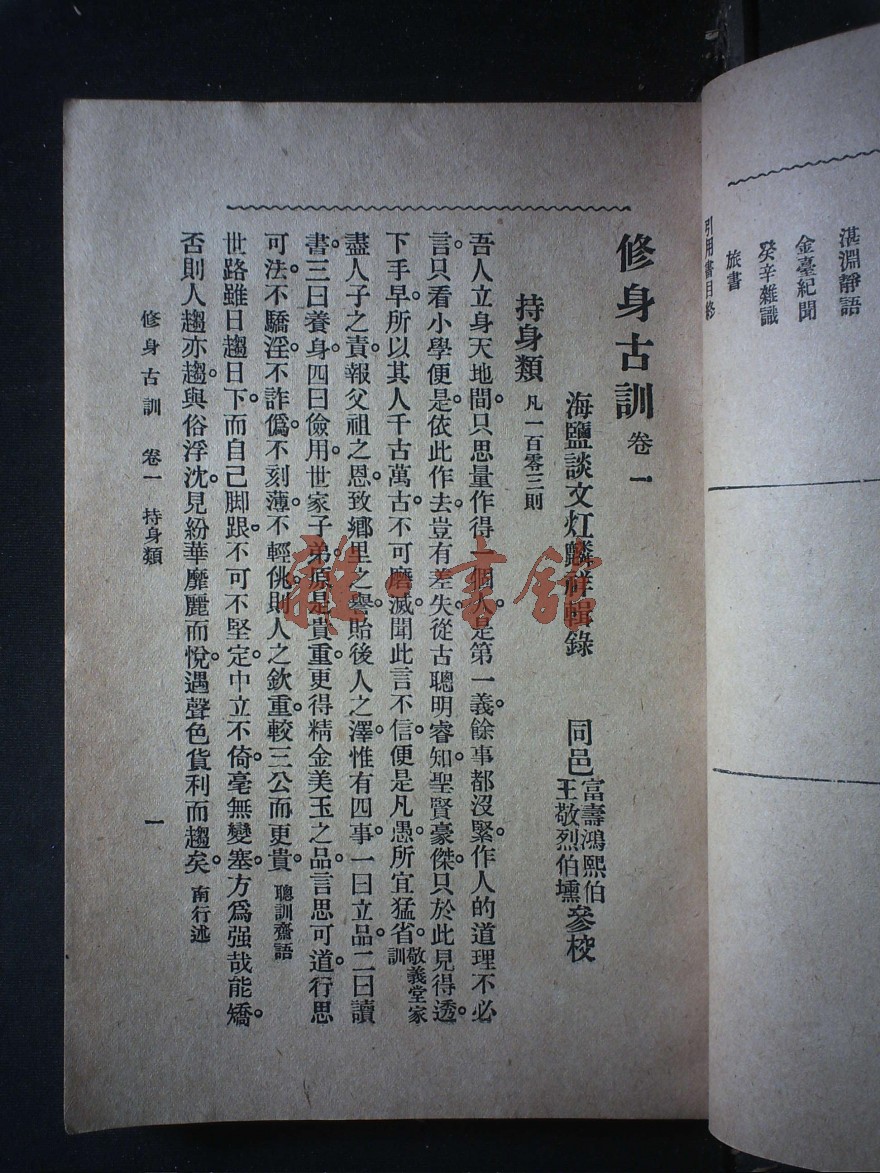 湛淵靜語
金臺紀聞
癸辛雜識
旅書
引用書目終
修身古訓 卷一
海鹽談文灴麟祥輯錄 同邑富壽鴻熙伯王敬烈伯壎參校
持身類 凡一百零三則
吾人立身天地間。只思量作得一個人。是第一義。餘事都沒緊。作人的道理。不必
言。只看小學便是。依此作去。豈有差失。從古聰明睿知。聖賢豪傑。只於此見得透。
下手早。所以其人千古萬古。不可磨滅。聞此言不信。便是凡愚。所宜猛省。敬義堂家訓
盡人子之責。報父祖之恩。致鄉里之譽。貽後人之澤。惟有四事。一曰立品。二曰讀
書。三曰養身。四曰儉用。世家子弟。原是貴重。更得精金美玉之品。言思可道。行思
可法。不驕淫。不詐僞。不刻薄。不輕佻。則人之欽重。較三公而更貴。 聰訓齋語
世路雖日趨日下。而自己脚跟。不可不堅定。中立不倚。毫無變塞。方爲强哉能矯。
否則人趨亦趨。與俗浮沈。見紛華靡麗而悅。遇聲色貨利而趨矣。 南行述
修身古訓 卷一 持身類
一
雜·書館